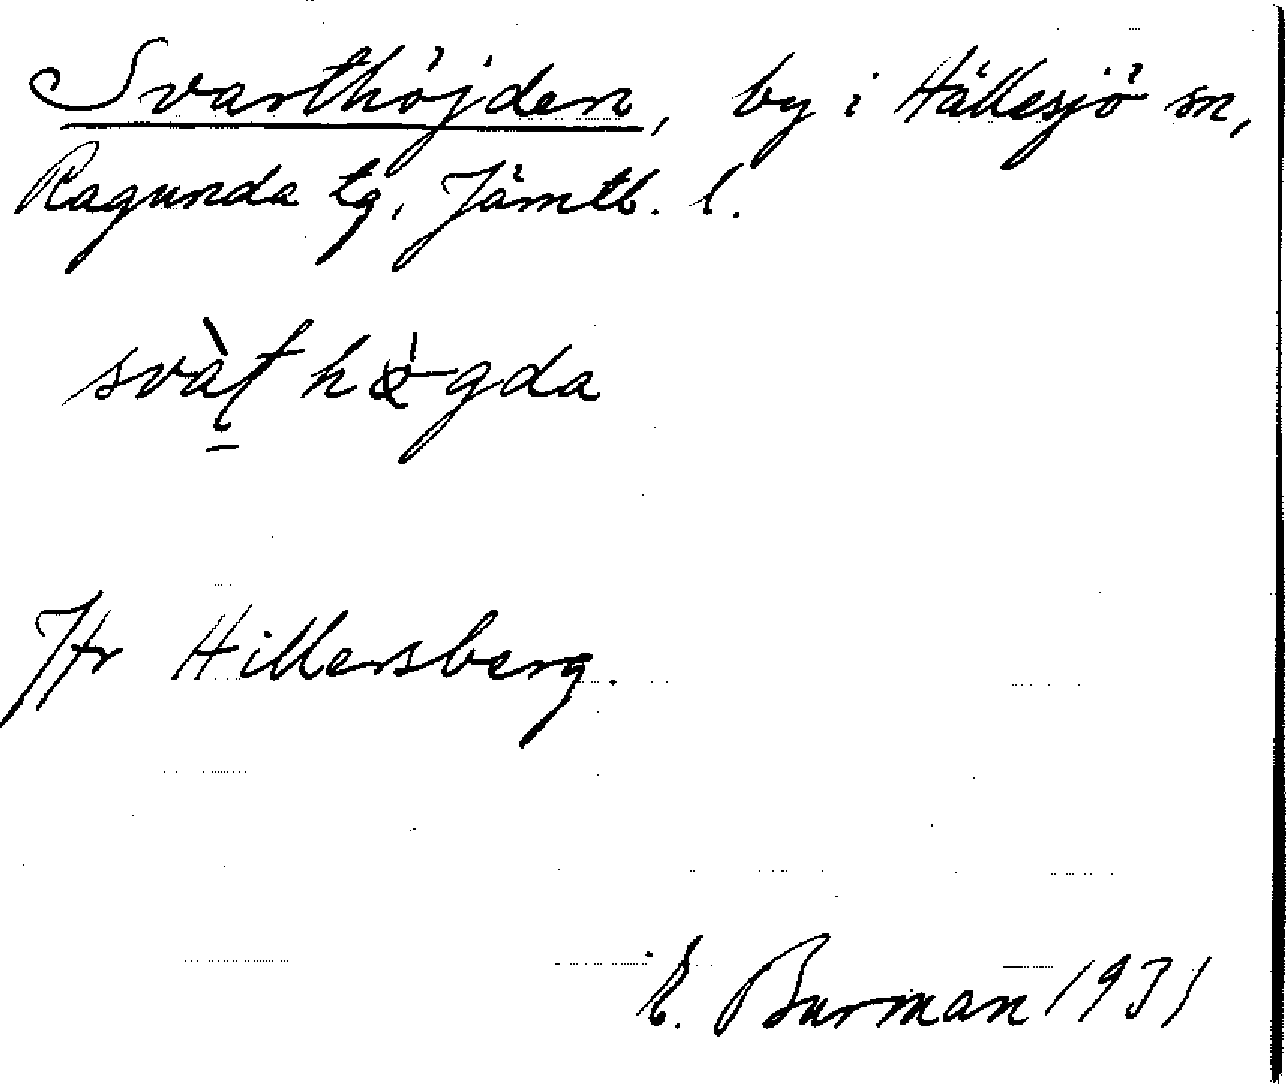 Svarthöjden, by i Hällesjö sn,
Ragunda tg, Jämtl. l.
svàt hø̀gda
Jfr Hillersberg.
E. Burman 1931